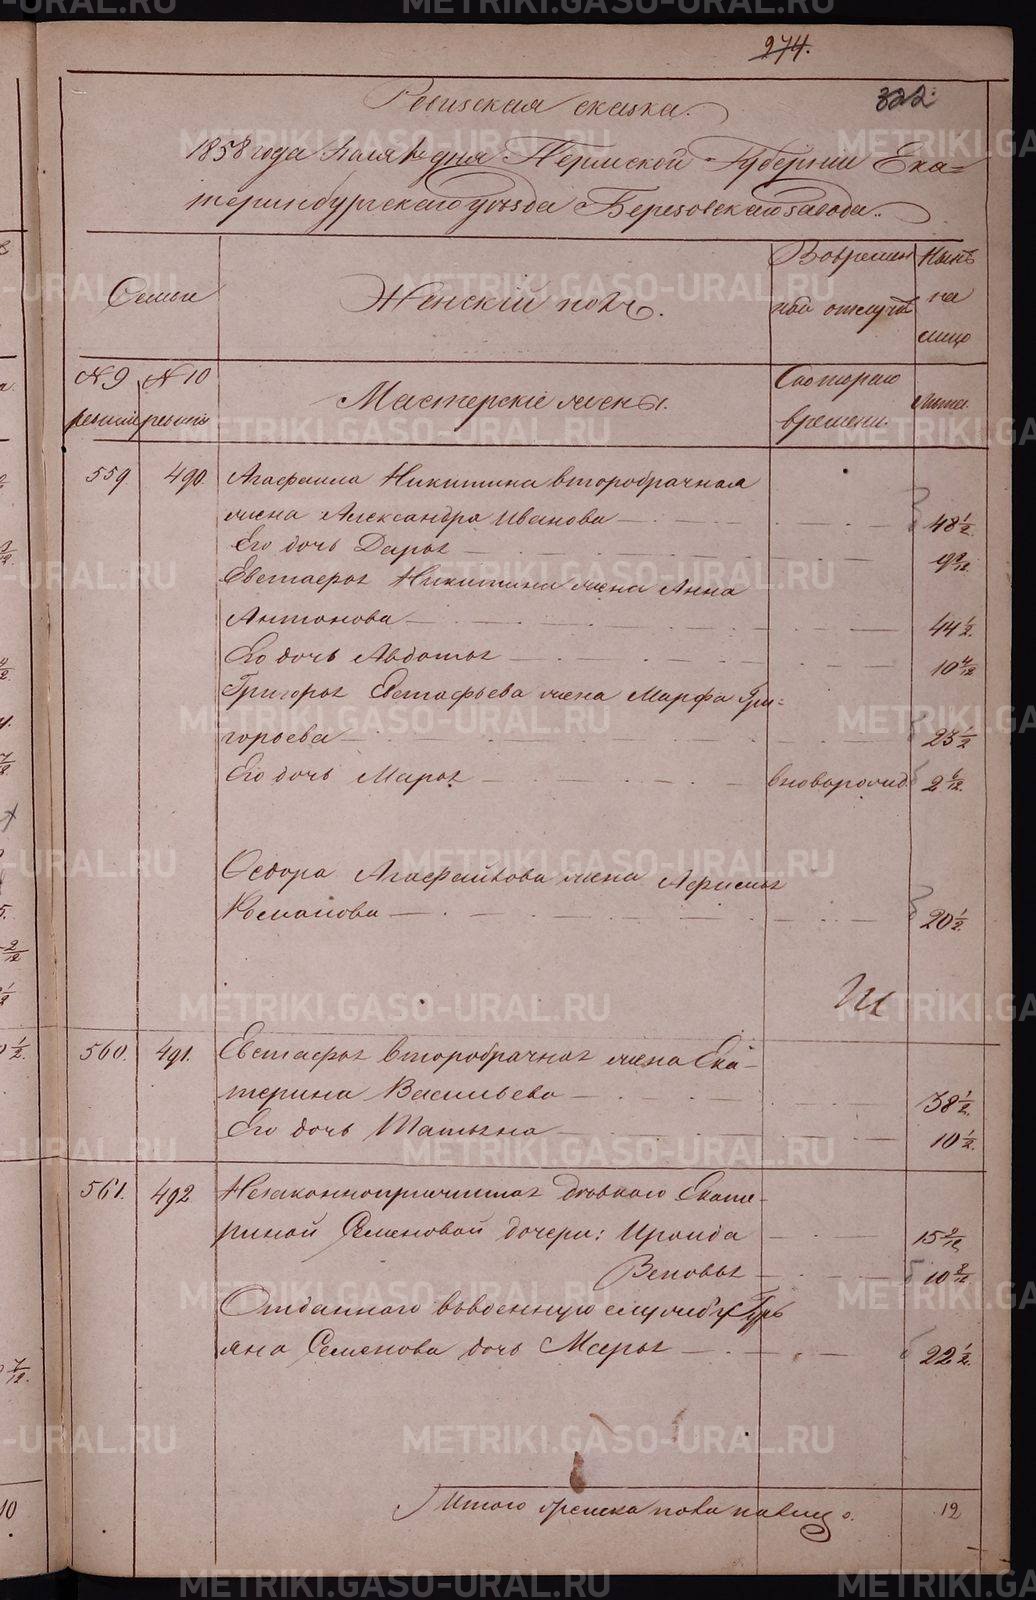 METRIKI.GASO-URAL.RU
274.
322
Ревизская сказка.
1858 года Маія 1 дня Пермской Губерніи Ека-
теринбургскаго уезда Березовскаго завода.
Семьи
Женскій полъ.
Вовремен
ной отлучкѣ
Нынѣ
на
лицо
№ 9
ревизіи
№ 10
ревизіи
Мастерскіе жены.
Скотораго
времени
Лѣта.
559. 490. Агафаила Никитина второбрачная
жена Александра Иванова 48 1/2
Его дочь Дарья 19 9/12
Евстафья Никитина жена Анна
Антонова 44 1/2
Его дочь Авдотья 10 4/12
Григорья Евстафьева жена Марфа Гри-
горьева 23 1/2
Его дочь Марья вноворожд. 2 6/12
Федора Агафайлова жена Афимья
Романова 20 1/2
560. 491. Евстафья второбрачная жена Ека-
терина Васильева 38 1/2
Его дочь Татьяна 10 1/2
561. 492. Незаконноприжитыя вдовою Екате-
риной Семеновой дочери: Ираида 15 9/12
Зеновья 10 2/12
Отданнаго ввоенную службу Гурь
яна Семенова дочь Марья 22 1/2
Итого женска пола налицо. 12